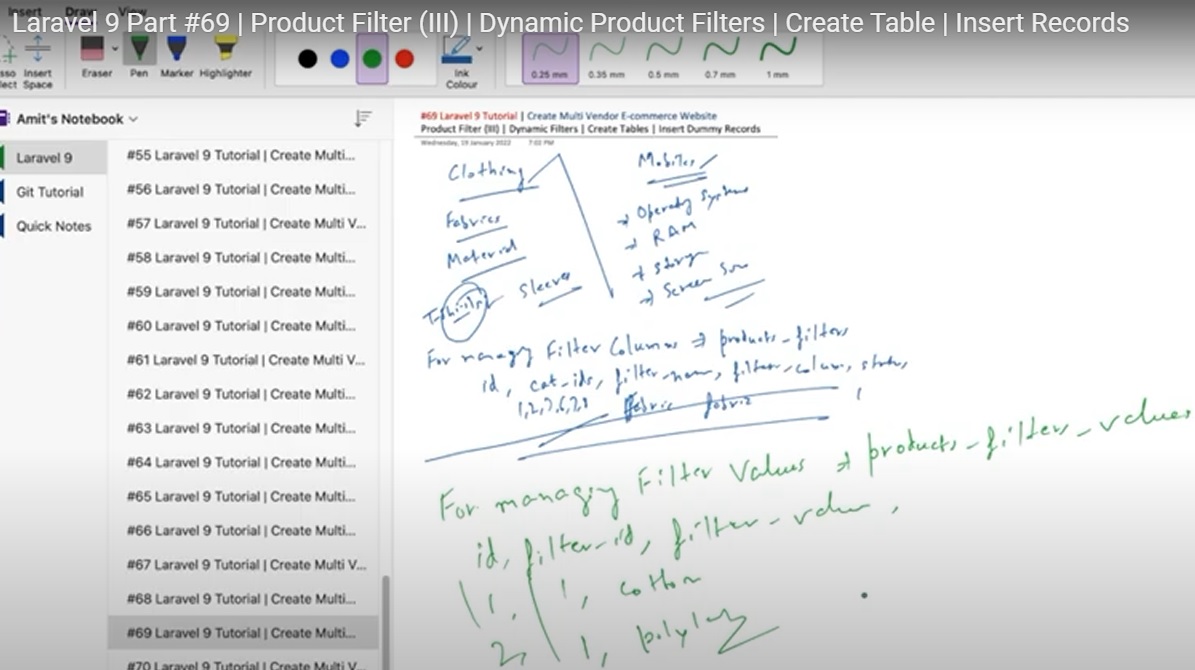 Laravel 9 Part #69 | Product Filter (III) | Dynamic Product Filters | Create Table | Insert Records
Insert Draw View
Insert Space
Eraser
Pen
Marker
Highlighter
Ink Colour
0.25 mm
0.35 mm
0.5 mm
0.7 mm
1 mm
Amit's Notebook
Laravel 9
Git Tutorial
Quick Notes
#55 Laravel 9 Tutorial | Create Multi...
#56 Laravel 9 Tutorial | Create Multi...
#57 Laravel 9 Tutorial | Create Multi V...
#58 Laravel 9 Tutorial | Create Multi...
#59 Laravel 9 Tutorial | Create Multi...
#60 Laravel 9 Tutorial | Create Multi...
#61 Laravel 9 Tutorial | Create Multi V...
#62 Laravel 9 Tutorial | Create Multi...
#63 Laravel 9 Tutorial | Create Multi...
#64 Laravel 9 Tutorial | Create Multi...
#65 Laravel 9 Tutorial | Create Multi...
#66 Laravel 9 Tutorial | Create Multi...
#67 Laravel 9 Tutorial | Create Multi V...
#68 Laravel 9 Tutorial | Create Multi...
#69 Laravel 9 Tutorial | Create Multi...
#70 Laravel 9 Tutorial | Create Multi V...
#69 Laravel 9 Tutorial | Create Multi Vendor E-commerce Website
Product Filter (III) | Dynamic Filters | Create Tables | Insert Dummy Records
Wednesday, 19 January 2022 7:02 PM
Clothing
Fabrics
Material
Sleeve
Mobiles
→ Operating System
→ RAM
→ Storage
→ Screen Size
For managing Filter Columns → products_filters
id, cat_ids, filter_name, filter_column, status,
Fabric fabric 1
For managing Filter Values → products_filters_values
id, filter_id, filter_value,
1, 1, cotton
2, 1, polyester